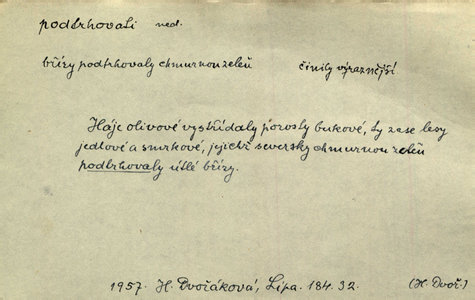 podtrhovati ned.
břízy podtrhovaly chmurnou zeleň činily výraznější
Háje olivové vystřídaly porosty bukové, ty zase lesy
jedlové a smrkové, jejichž seversky chmurnou zeleň
podtrhovaly útlé břízy.
1957. H. Dvořáková, Lípa. 184. 32. (H. Dvoř.)